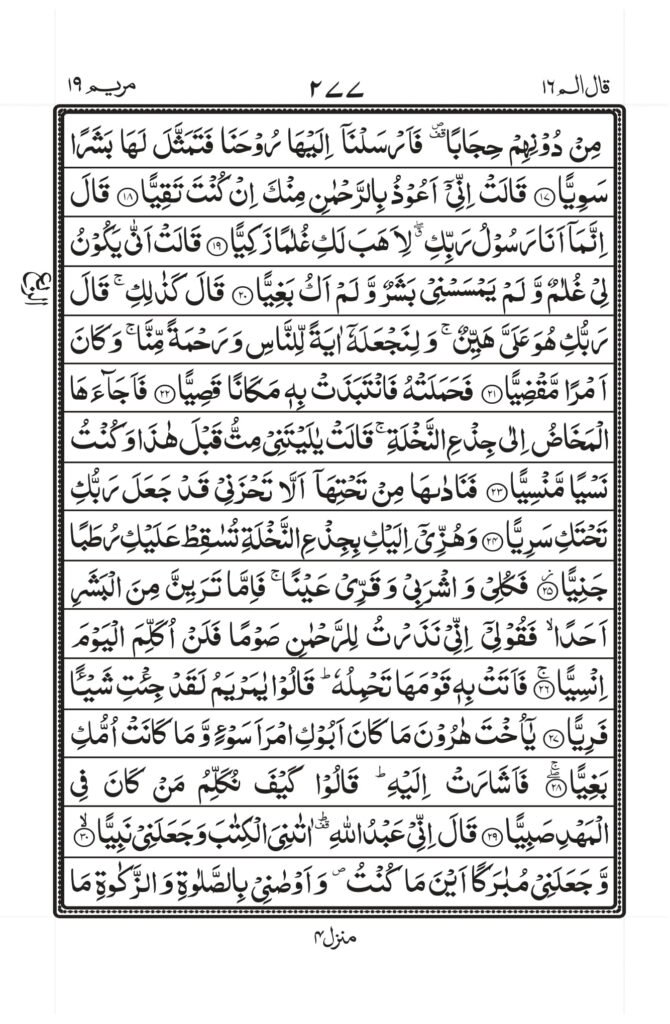 قال الم ١٦ ٢٧٧ مريم ١٩
مِنْ دُوْنِهِمْ حِجَابًا ۪ۖ فَاَرْسَلْنَاۤ اِلَيْهَا رُوْحَنَا فَتَمَثَّلَ لَهَا بَشَرًا
سَوِيًّا ﴿١٧﴾ قَالَتْ اِنِّىْۤ اَعُوْذُ بِالرَّحْمٰنِ مِنْكَ اِنْ كُنْتَ تَقِيًّا ﴿١٨﴾ قَالَ
اِنَّمَاۤ اَنَا رَسُوْلُ رَبِّكِ ۖ لِاَهَبَ لَكِ غُلٰمًا زَكِيًّا ﴿١٩﴾ قَالَتْ اَنّٰى يَكُوْنُ
لِىْ غُلٰمٌ وَّ لَمْ يَمْسَسْنِىْ بَشَرٌ وَّ لَمْ اَكُ بَغِيًّا ﴿٢٠﴾ قَالَ كَذٰلِكِ ۚ قَالَ
رَبُّكِ هُوَ عَلَىَّ هَيِّنٌ ۚ وَ لِنَجْعَلَهٗۤ اٰيَةً لِّلنَّاسِ وَ رَحْمَةً مِّنَّا ۚ وَ كَانَ
اَمْرًا مَّقْضِيًّا ﴿٢١﴾ فَحَمَلَتْهُ فَانْتَبَذَتْ بِهٖ مَكَانًا قَصِيًّا ﴿٢٢﴾ فَاَجَآءَهَا
الْمَخَاضُ اِلٰى جِذْعِ النَّخْلَةِ ۚ قَالَتْ يٰلَيْتَنِىْ مِتُّ قَبْلَ هٰذَا وَ كُنْتُ
نَسْيًا مَّنْسِيًّا ﴿٢٣﴾ فَنَادٰىهَا مِنْ تَحْتِهَاۤ اَلَّا تَحْزَنِىْ قَدْ جَعَلَ رَبُّكِ
تَحْتَكِ سَرِيًّا ﴿٢٤﴾ وَ هُزِّىْۤ اِلَيْكِ بِجِذْعِ النَّخْلَةِ تُسٰقِطْ عَلَيْكِ رُطَبًا
جَنِيًّا ﴿٢٥﴾ فَكُلِىْ وَ اشْرَبِىْ وَ قَرِّىْ عَيْنًا ۚ فَاِمَّا تَرَيِنَّ مِنَ الْبَشَرِ
اَحَدًا ۙ فَقُوْلِىْۤ اِنِّىْ نَذَرْتُ لِلرَّحْمٰنِ صَوْمًا فَلَنْ اُكَلِّمَ الْيَوْمَ
اِنْسِيًّا ﴿٢٦﴾ۚ فَاَتَتْ بِهٖ قَوْمَهَا تَحْمِلُهٗ ؕ قَالُوْا يٰمَرْيَمُ لَقَدْ جِئْتِ شَيْـًٔا
فَرِيًّا ﴿٢٧﴾ يٰۤاُخْتَ هٰرُوْنَ مَا كَانَ اَبُوْكِ امْرَاَ سَوْءٍ وَّ مَا كَانَتْ اُمُّكِ
بَغِيًّا ﴿٢٨﴾ۖۚ فَاَشَارَتْ اِلَيْهِ ؕ قَالُوْا كَيْفَ نُكَلِّمُ مَنْ كَانَ فِى
الْمَهْدِ صَبِيًّا ﴿٢٩﴾ قَالَ اِنِّىْ عَبْدُ اللّٰهِ ؕ۫ اٰتٰىنِىَ الْكِتٰبَ وَ جَعَلَنِىْ نَبِيًّا ﴿٣٠﴾ۙ
وَّ جَعَلَنِىْ مُبٰرَكًا اَيْنَ مَا كُنْتُ ۪ وَ اَوْصٰنِىْ بِالصَّلٰوةِ وَ الزَّكٰوةِ مَا
منزل ٤